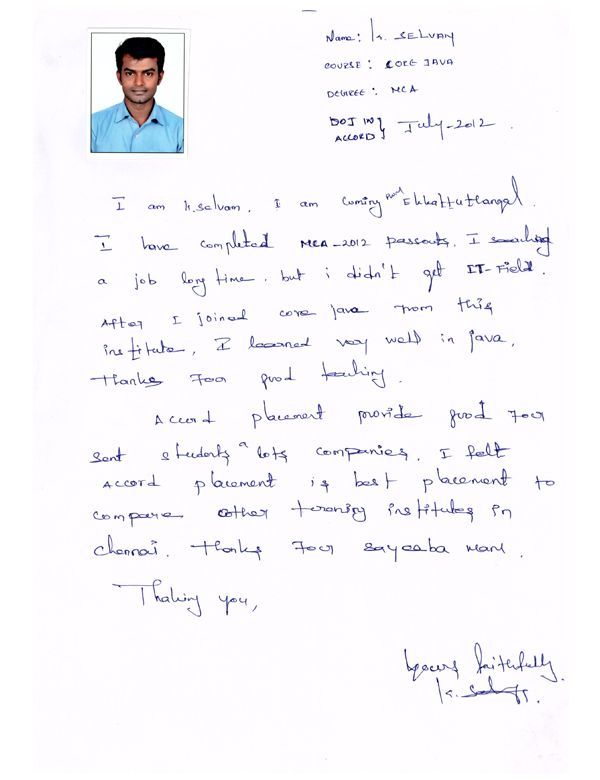 Name: K. SELVAM
COURSE: CORE JAVA
DEGREE: MCA
DOJ IN
ACCORD } July-2012.
I am K.selvam. I am coming from Ekkattuthangal.
I have completed MCA-2012 passouts. I searching
a job long time. but i didn't get IT-Field.
After I joined core java from this
institute, I learned very well in java.
Thanks Foor good teaching.
Accord placement provide good Foor
sent students a lots companies. I felt
ACCORD placement is best placement to
compare other traning institutes in
chennai. thanks Foor sayeeba mam.
Thaking you,
yours faithfully.
K.